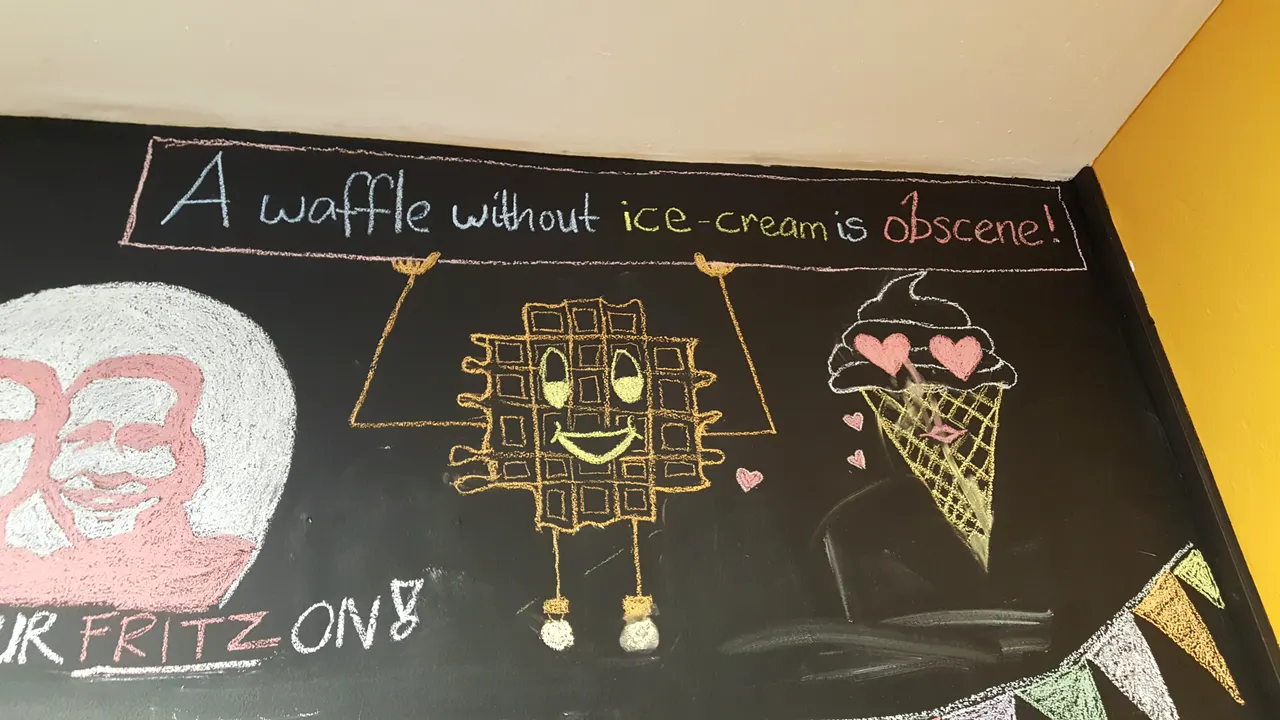 A waffle without ice-cream is obscene!
UR FRITZ ON!